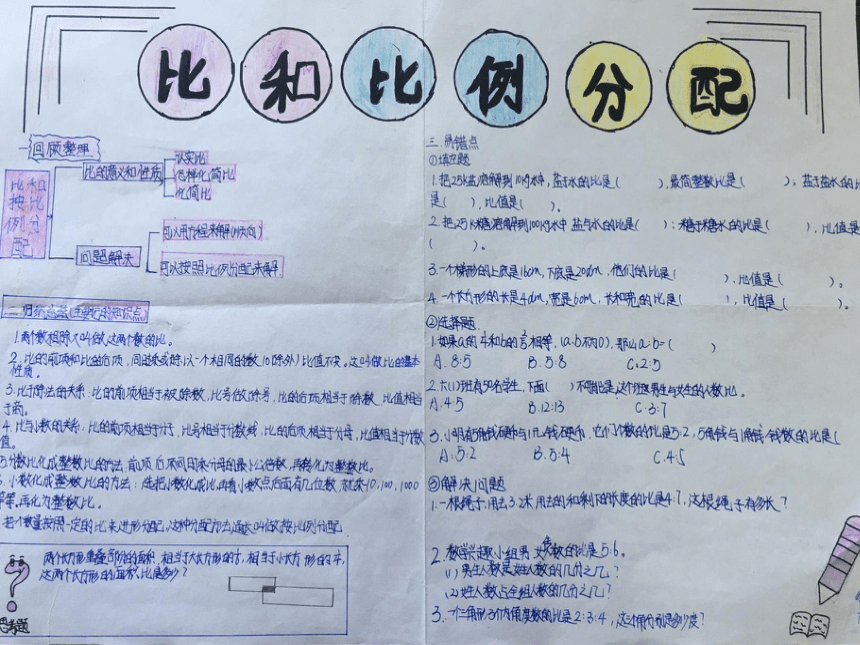 比和比例分配
一 回顾整理
比和按比例分配
比的意义和性质
认实比
怎样化简比
化简比
问题解决
可以用方程来解
可以按照比例分配来解
1.两个数相除又叫做这两个数的比。
2.比的前项和比的后项,同时乘或除以一个相同的数(0除外)比值不变。这叫做比的基本
性质。
3.比于除法的关系:比的前项相当于被除数,比号做除号,比的后项相当于除数,比值相当
于商。
4.比与小数的关系:比的前项相当于分子,比号相当于分数线,比的后项相当于分母,比值相当于分数
值。
5.分数比化成整数比的方法:前项后项同时乘分母的最小公倍数,再转化为整数比。
6.小数化成整数比的方法:先把小数化成比,再看小数点后面有几位数,就乘10,100,1000
等,再化为整数比。
把个数量按照一定的比来进形分配,这种分配方法通常叫做按比例分配
两个长方形重叠部分的面积,相当于大长方形的,相当于小长方形的
这两个长方形的面积比是多少?
思考题
三.易错点
①填空题
1.把25k盐溶解到10吨水中,盐于水的比是( ),最简整数比是( );盐于盐水的比
是( ),比值是( )。
2.把25k糖溶解到100k水中 盐与水的比是( );糖于糖水的比是( ),比值是
( )。
3.一个梯形的上底是16cm,下底是20dm,他们的比是( ),比值是( )。
4.一个长方形的长是4dm,宽是60m,长和宽的比是( ),比值是( )。
②选择题
1.如果a的和b的相等,(a·b不为0),那么a:b=( )
A.8:5 B.5:8 C.2:5
2.六(1)班有50名学生,下面( )不可能是这个班男生与女生的人数比。
A.4:5 B.12:13 C:3:7
3.小明有5角钱硬币与1元钱硬币,它们个数的比是5:2,5角钱与1角钱钱数的比是(
A:5:2 B.5:4 C.4:5
③解决问题
1.一根绳子,用去3.2米,用去的和剩下的长度的比是4:7,这根绳子有多长?
2.数学兴趣小组男女人数的比是5:6。
(1)男生人数是女生人数的几分之几?
(2)女生人数占全组人数的几分之几?
3.一个三角形3个内角度数的比是2:3:4,这三个角分别是多少度?